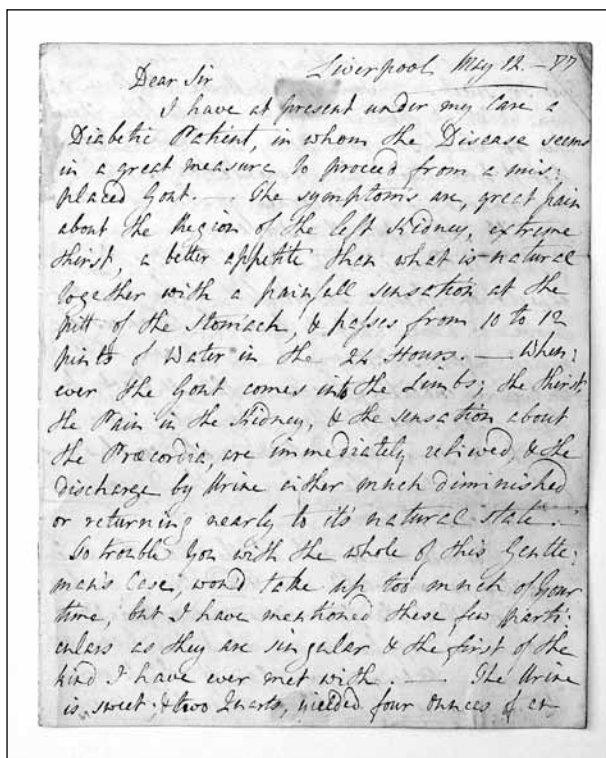 Liverpool May 22. – 77
Dear Sir
I have at present under my Care a
Diabetic Patient, in whom the Disease seems
in a great measure to proceed from a mis:
placed Gout. — . The symptoms are, great pain
about the Region of the left Kidney, extreme
thirst, a better appetite than what is natural
together with a painfull sensation at the
pitt of the Stomach, & passes from 10 to 12
pints of Water in the 24 Hours. — When:
ever the Gout comes into the Limbs; the thirst,
the Pain in the Kidney, & the sensation about
the Præcordia, are immediately relieved, & the
discharge by Urine either much diminished
or returning nearly to it's natural state. —
To trouble You with the whole of this Gentle:
man's Case, woud take up too much of Your
time, but I have mentioned these few parti:
culars as they are singular & the first of the
kind I have ever met with. — The Urine
is sweet; & two Quarts, yielded four ounces of an